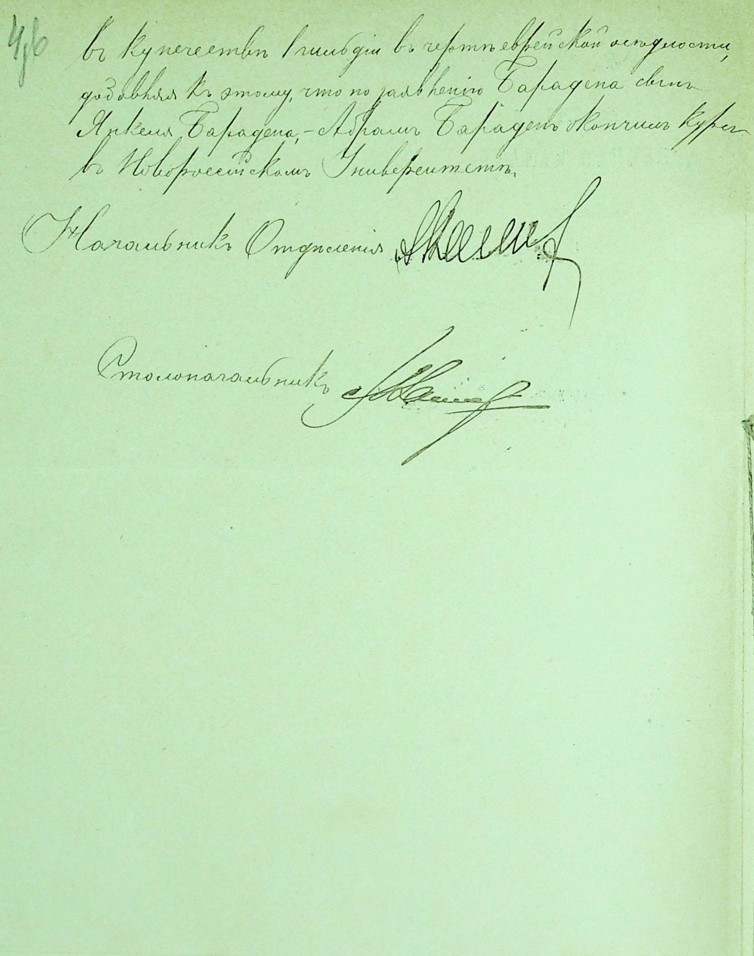 въ купечествѣ 1 гильдіи въ чертѣ еврейской осѣдлости,
добавляя къ этому, что по заявленію Барадена сынъ
Янкеля Барадена, - Абрамъ Бараденъ окончилъ курсъ
въ Новороссійскомъ Университетѣ.
Начальникъ Отдѣленія
Столоначальникъ